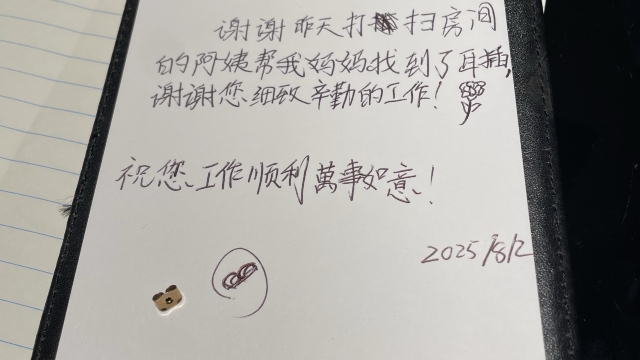 谢谢昨天打扫房间
的阿姨帮我妈妈找到了耳插,
谢谢您细致辛勤的工作!
祝您、工作顺利萬事如意、!
2025/8/2